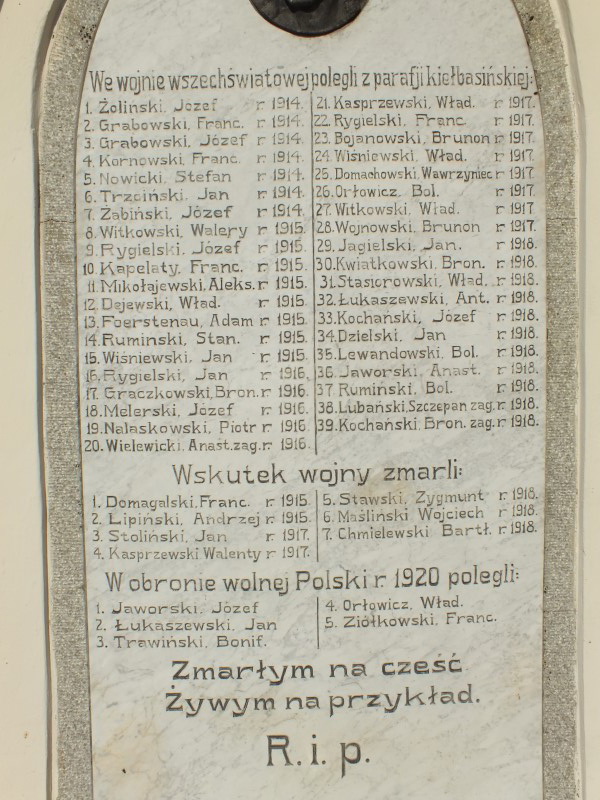 We wojnie wszechświatowej polegli z parafji kiełbasińskiej:
1. Żoliński, Józef r. 1914.
2. Grabowski, Franc. r. 1914.
3. Grabowski, Józef r. 1914.
4. Kornowski, Franc. r. 1914.
5. Nowicki, Stefan r. 1914.
6. Trzciński, Jan r. 1914.
7. Żabiński, Józef r. 1914.
8. Witkowski, Walery r. 1915.
9. Rygielski, Józef r. 1915.
10. Kapelaty, Franc. r. 1915.
11. Mikołajewski, Aleks. r. 1915.
12. Dejewski, Wład. r. 1915.
13. Foerstenau, Adam r. 1915.
14. Rumiński, Stan. r. 1915.
15. Wiśniewski, Jan r. 1915.
16. Rygielski, Jan r. 1916.
17. Graczkowski, Bron. r. 1916.
18. Melerski, Józef r. 1916.
19. Nalaskowski, Piotr r. 1916.
20. Wielewicki, Anast. zag. r. 1916.
21. Kasprzewski, Wład. r. 1917.
22. Rygielski, Franc. r. 1917.
23. Bojanowski, Brunon r. 1917.
24. Wiśniewski, Wład. r. 1917.
25. Domachowski, Wawrzyniec r. 1917.
26. Orłowicz, Bol. r. 1917.
27. Witkowski, Wład. r. 1917.
28. Wojnowski, Brunon r. 1917.
29. Jagielski, Jan. r. 1918.
30. Kwiatkowski, Bron. r. 1918.
31. Stasiorowski, Wład. r. 1918.
32. Łukaszewski, Ant. r. 1918.
33. Kochański, Józef r. 1918.
34. Dzielski, Jan r. 1918.
35. Lewandowski, Bol. r. 1918.
36. Jaworski, Anast. r. 1918.
37. Rumiński, Bol. r. 1918.
38. Lubański, Szczepan zag. r. 1918.
39. Kochański, Bron. zag. r. 1918.
Wskutek wojny zmarli:
1. Domagalski, Franc. r. 1915.
2. Lipiński, Andrzej r. 1915.
3. Stoliński, Jan r. 1917.
4. Kasprzewski Walenty r. 1917.
5. Stawski, Zygmunt r. 1918.
6. Maśliński Wojciech r. 1918.
7. Chmielewski Bartł. r. 1918.
W obronie wolnej Polski r. 1920 polegli:
1. Jaworski, Józef
2. Łukaszewski, Jan
3. Trawiński, Bonif.
4. Orłowicz, Wład.
5. Ziółkowski, Franc.
Zmarłym na cześć
Żywym na przykład.
R. i. p.